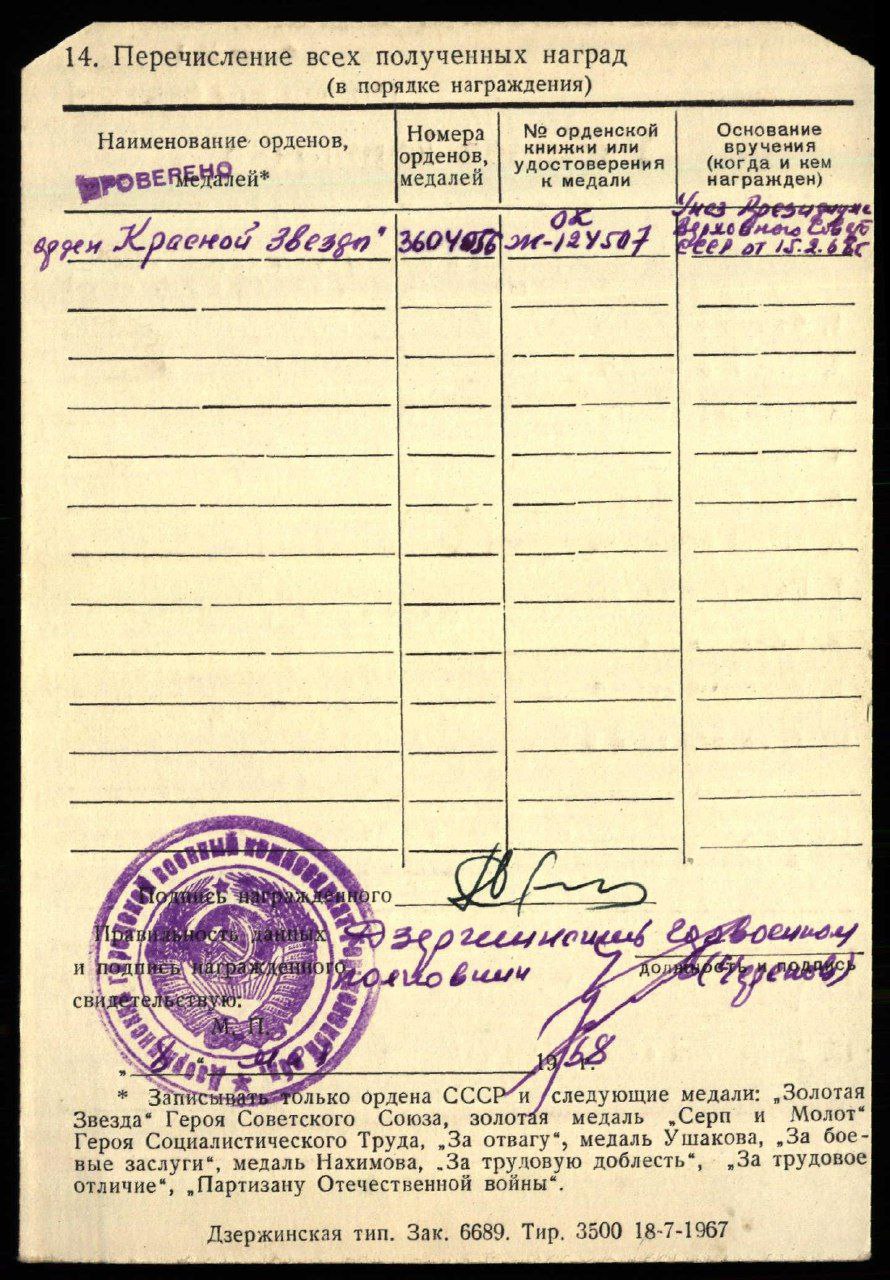 14. Перечисление всех полученных наград
(в порядке награждения)
Наименование орденов,
медалей*
ПРОВЕРЕНО
Номера
орденов,
медалей
№ орденской
книжки или
удостоверения
к медали
Основание
вручения
(когда и кем
награжден)
орден Красной Звезды"
3604056
ОК
Ж-124507
Указ Президиума
Верховного Совета
СССР от 15.2.68г
Подпись награжденного
Правильность данных
и подпись награжденного
свидетельствую:
М. П.
Дзержинский горвоенком
полковник
должность и подпись
1968 г.
* Записывать только ордена СССР и следующие медали: „Золотая
Звезда“ Героя Советского Союза, золотая медаль „Серп и Молот“
Героя Социалистического Труда, „За отвагу“, медаль Ушакова, „За бое-
вые заслуги“, медаль Нахимова, „За трудовую доблесть“, „За трудовое
отличие“, „Партизану Отечественной войны“.
Дзержинская тип. Зак. 6689. Тир. 3500 18-7-1967